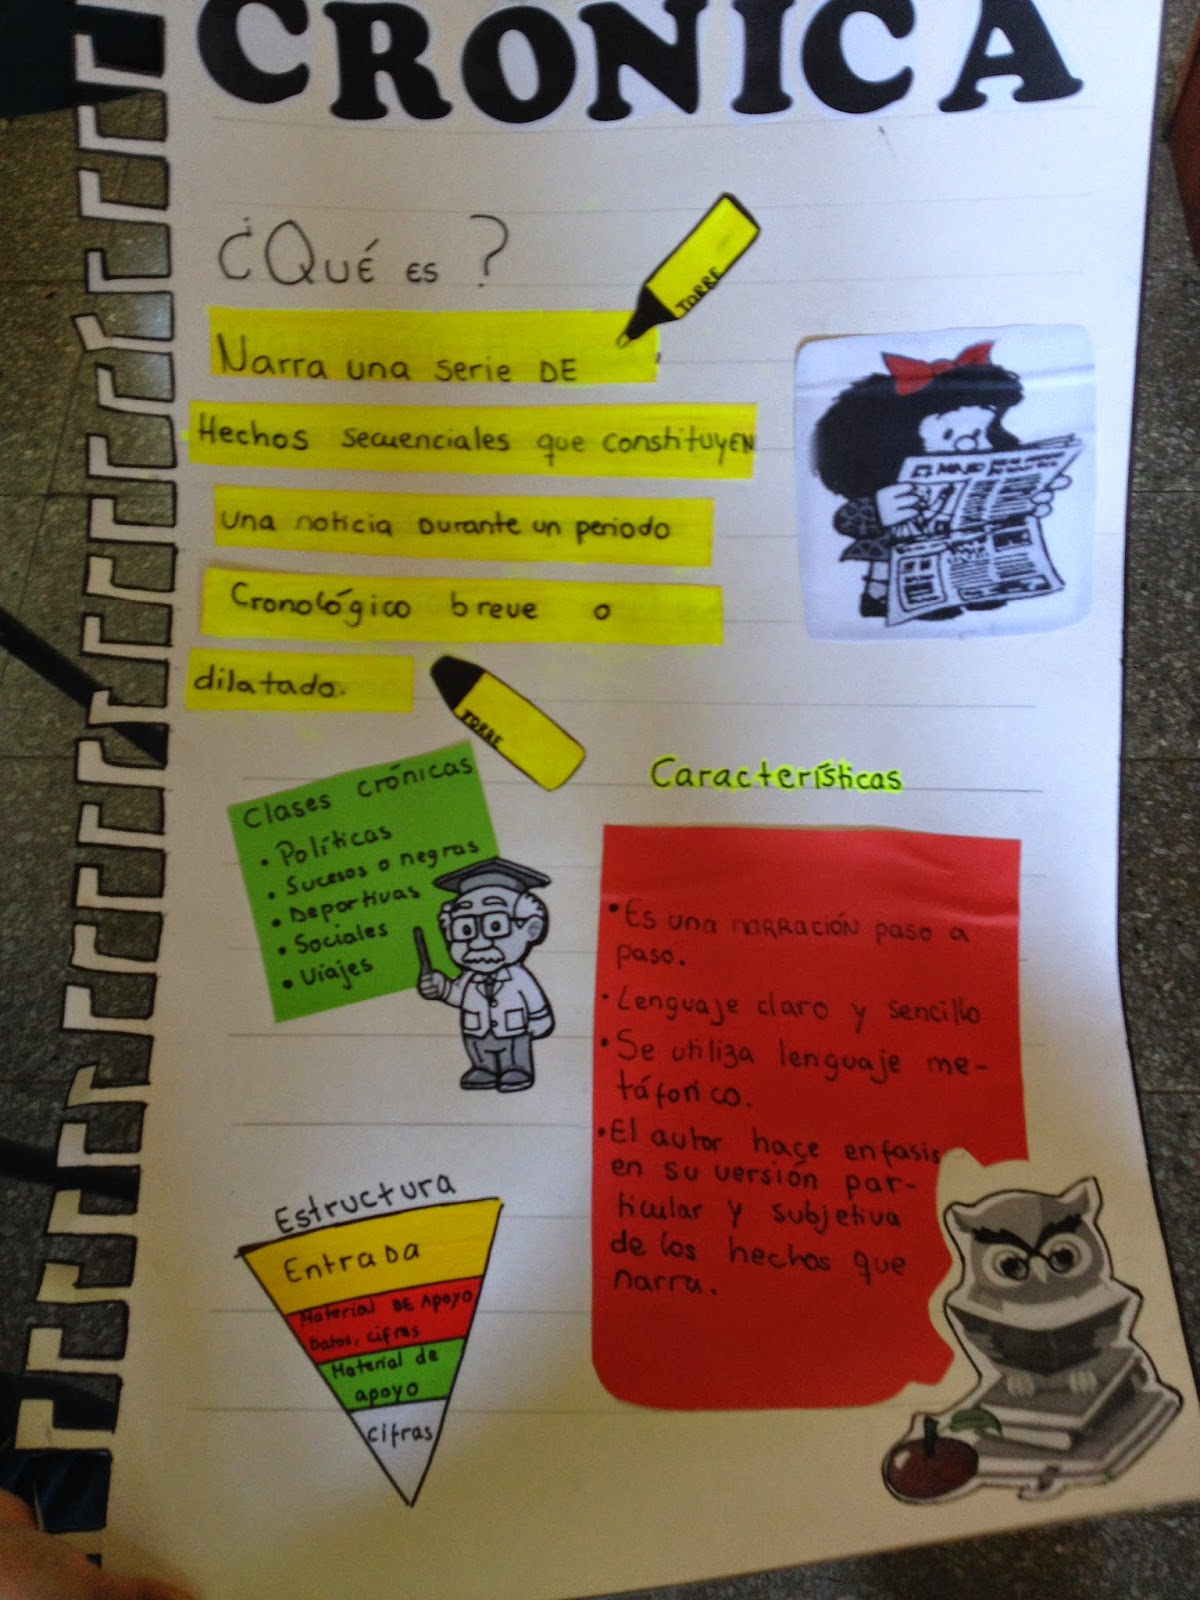 CRÓNICA
¿QUÉ ES?
TORRE
Narra una serie DE
Hechos secuenciales que constituyEN
una noticia DURANTE un periodo
Cronológico breve o
dilatado.
TORRE
Clases crónicas
• Políticas
• Sucesos o negras
• Deportivas
• Sociales
• Viajes
Características
• Es una narración paso a
paso.
• Lenguaje claro y sencillo
• Se utiliza lenguaje me-
táforico.
• El autor hace enfasis
en su versión par-
ticular y subjetiva
de los hechos que
narra.
Estructura
Entrada
Material DE Apoyo
Datos, cifras
Material de
apoyo
cifras